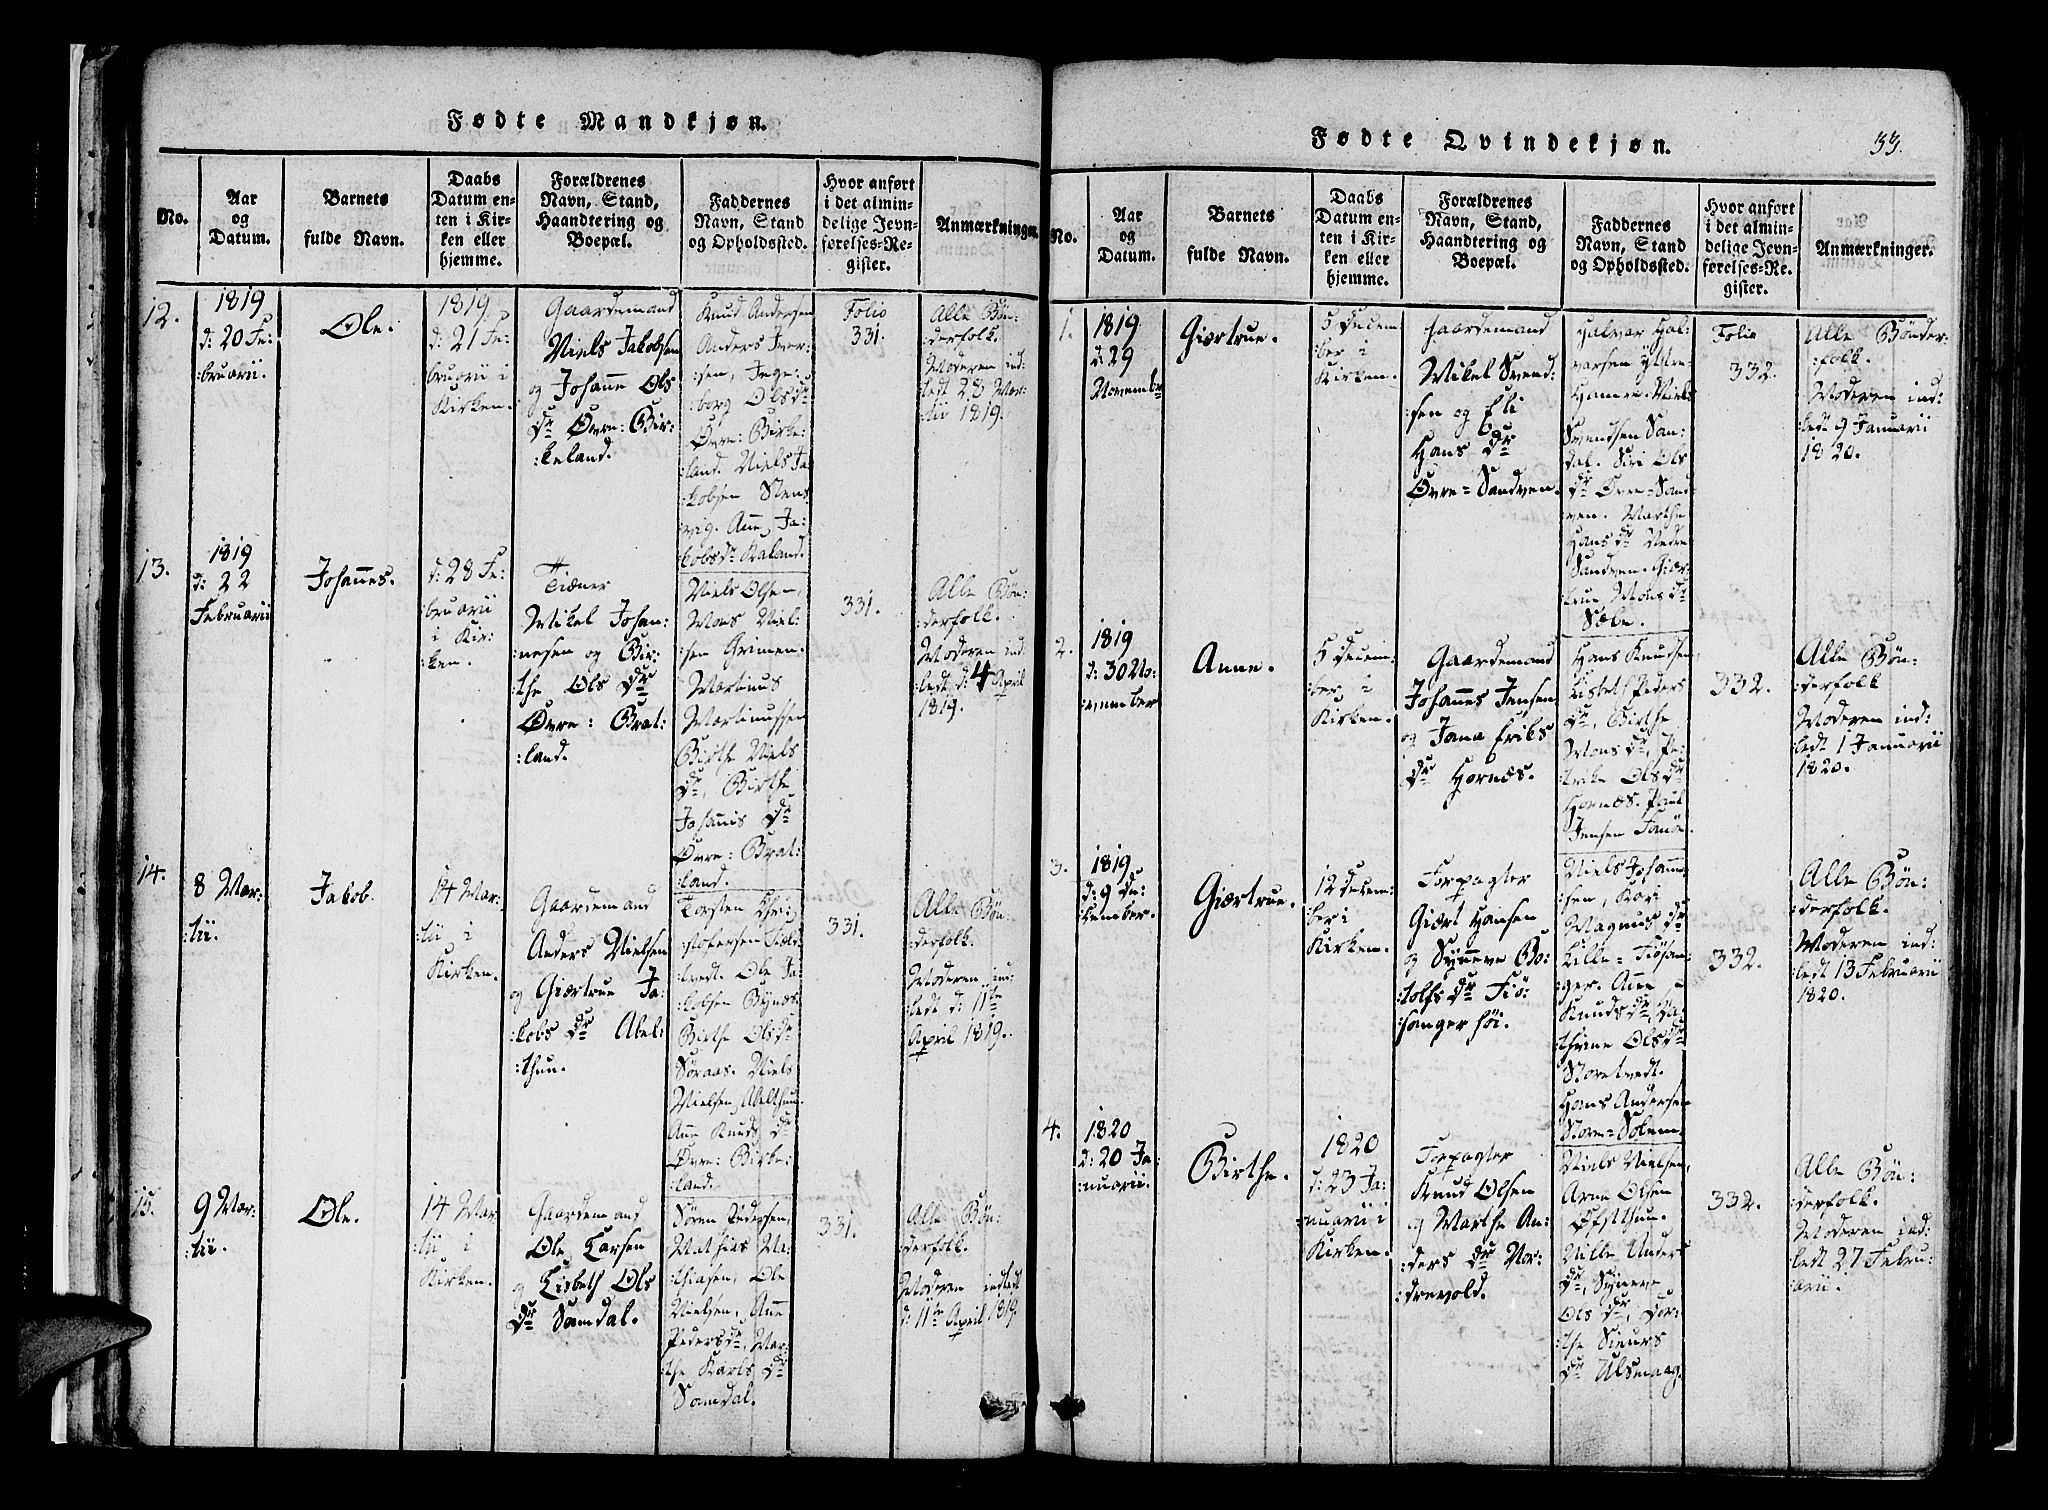 Fødte Mandkjøn.
No.
Aar
og
Datum.
Barnets
fulde Navn.
Daabs
Datum en-
ten i Kir-
ken eller
hjemme.
Forældrenes
Navn, Stand,
Haandtering og
Boepæl.
Faddernes
Navn, Stand
og Opholdssted.
Hvor anført
i det almin-
delige Jevn-
førelses-Re-
gister.
Anmærkninger.
12.
1819
d: 20 Fe:
:bruarii.
Ole.
1819.
d: 21 Fe:
bruarii i
Kirken.
Gaardemand
Niels Jakobsen
og Johanne Ols
Dr Øvre: Bir:
:keland.
Knud Andersen
Anders Iver:
:sen, Inge:
:borg Olsdr
Øvre: Birke:
:land. Niels Ja:
:kobsen Stens
vig. Anne Ja:
kobsdr Kaland.
Folio
331.
Alle Bøn:
:derfolk.
Moderen ind:
ledt 28 Mar:
tii 1819.
13.
1819
d: 22
Februarii
Johannes.
d: 28 Fe:
bruarii
i Kir:
ken.
Tiæner
Mikel Johan:
:nesen og Bir:
:the Ols Dr
Øvre: Brat:
:land.
Niels Olsen,
Mons Niel:
sen Grimen.
Martinus
Martinussen
Birthe Niels
Dr, Birthe
Johannis Dr
Øvre: Brat:
:land.
331.
Alle Bøn:
:derfolk.
Moderen ind:
:ledt d: 4 April
1819.
14.
8 Mar:
:tii.
Jakob.
14 Mar:
:tii i
Kirken.
Gaardemand
Anders Nielsen
og Giørtrue Ja:
:kobs Dr Abel:
:thun.
Torsten Chri:
:stofersen Tveld
tvedt. Ole Ja:
:kobsen Bynæs.
Birthe Olsdr
Søraas. Niels
Nielsen, Abelthun.
Anne Knuds Dr
Øvre: Birke:
:land.
331.
Alle Bøn:
:derfolk.
Moderen in:
:ledt d: 11te
April 1819.
15.
9 Mar:
:tii.
Ole.
14 Mar
:tii i
Kirken.
Gaardemand
Ole Larsen
og Lisbeth Ols
Dr Samdal.
Søren Pedersen,
Mathias Ma:
:thiasen, Ole
Nielsen, Anne
Pedersdr, Mar:
:the Karls Dr
Samdal.
331.
Alle Bøn:
:derfolk.
Moderen indledt
d: 11te April 1819.
Fødte Qvindekjøn.
33.
No.
Aar
og
Datum.
Barnets
fulde Navn.
Daabs
Datum en-
ten i Kir-
ken eller
hjemme.
Forældrenes
Navn, Stand,
Haandtering og
Boepæl.
Faddernes
Navn, Stand
og Opholdssted.
Hvor anført
i det almin-
delige Jevn-
førelses-Re-
gister.
Anmærkninger.
1.
1819
d: 29
November
Giørtrue.
5 Decem:
:ber i
Kirken.
Gaardemand
Mikel Svend:
:sen og Eli
Hans Dr
Øvre=Sandven.
Halvar Hal:
varsen Yttre
Hamre. Niels
Svendsen San:
dal. Siri Ols
Dr Øvre=Sand
ven. Marthe
Hansdr Nedre
Sandven. Giør:
true Monsdr
Sæbe.
Folio
332.
Alle Bønder:
:folk.
Moderen ind:
:ledt 9 Januarii
1820.
2.
1819
d: 30 No:
:vember
Anne.
5 Decem:
:ber, i
Kirken.
Gaardemand
Johannes Jensen
og Jana Eriks
Dr Hornæs.
Hans Knudsen,
Lisbet Peders
Dr, Birthe
Mons dr, Pe:
trike Olsdr
Hornæs. Paul
Jensen Fanøe.
332.
Alle Bøn:
:derfolk
Moderen ind:
:ledt 1 Januarii
1820.
3.
1819
d: 9 De:
:cember.
Giørtrue.
12 Decem:
:ber i
Kirken.
Forpagter
Giært Hansen
og Synneve Bo:
:tolfsdr Fiø:
:sanger høi.
Niels Johann:
:sen, Kari
Magnus dr
Lille=Fiøsan:
ger. Anne
Knudsdr, Ca:
:thrine Olsdr
Storetvedt.
Hans Andersen
Store=Solem.
332.
Alle Bøn:
:derfolk.
Moderen ind:
:ledt 13 Februarii
1820.
4.
1820
d: 20 Ja:
:nuarii.
Birthe.
1820
d: 23 Ja:
:nuarii i
Kirken.
Forpagter
Knud Olsen
og Marthe An:
:ders Dr Nor:
:drevold.
Niels Nielsen,
Arne Olsen
Øfstthun.
Nille Anders
Dr, Synneve
Ols Dr, Dor:
:the Siurs
Dr Ulsmaag.
332.
Alle Bøn:
:derfolk.
Moderen ind:
:ledt 27 Febru:
:arii.